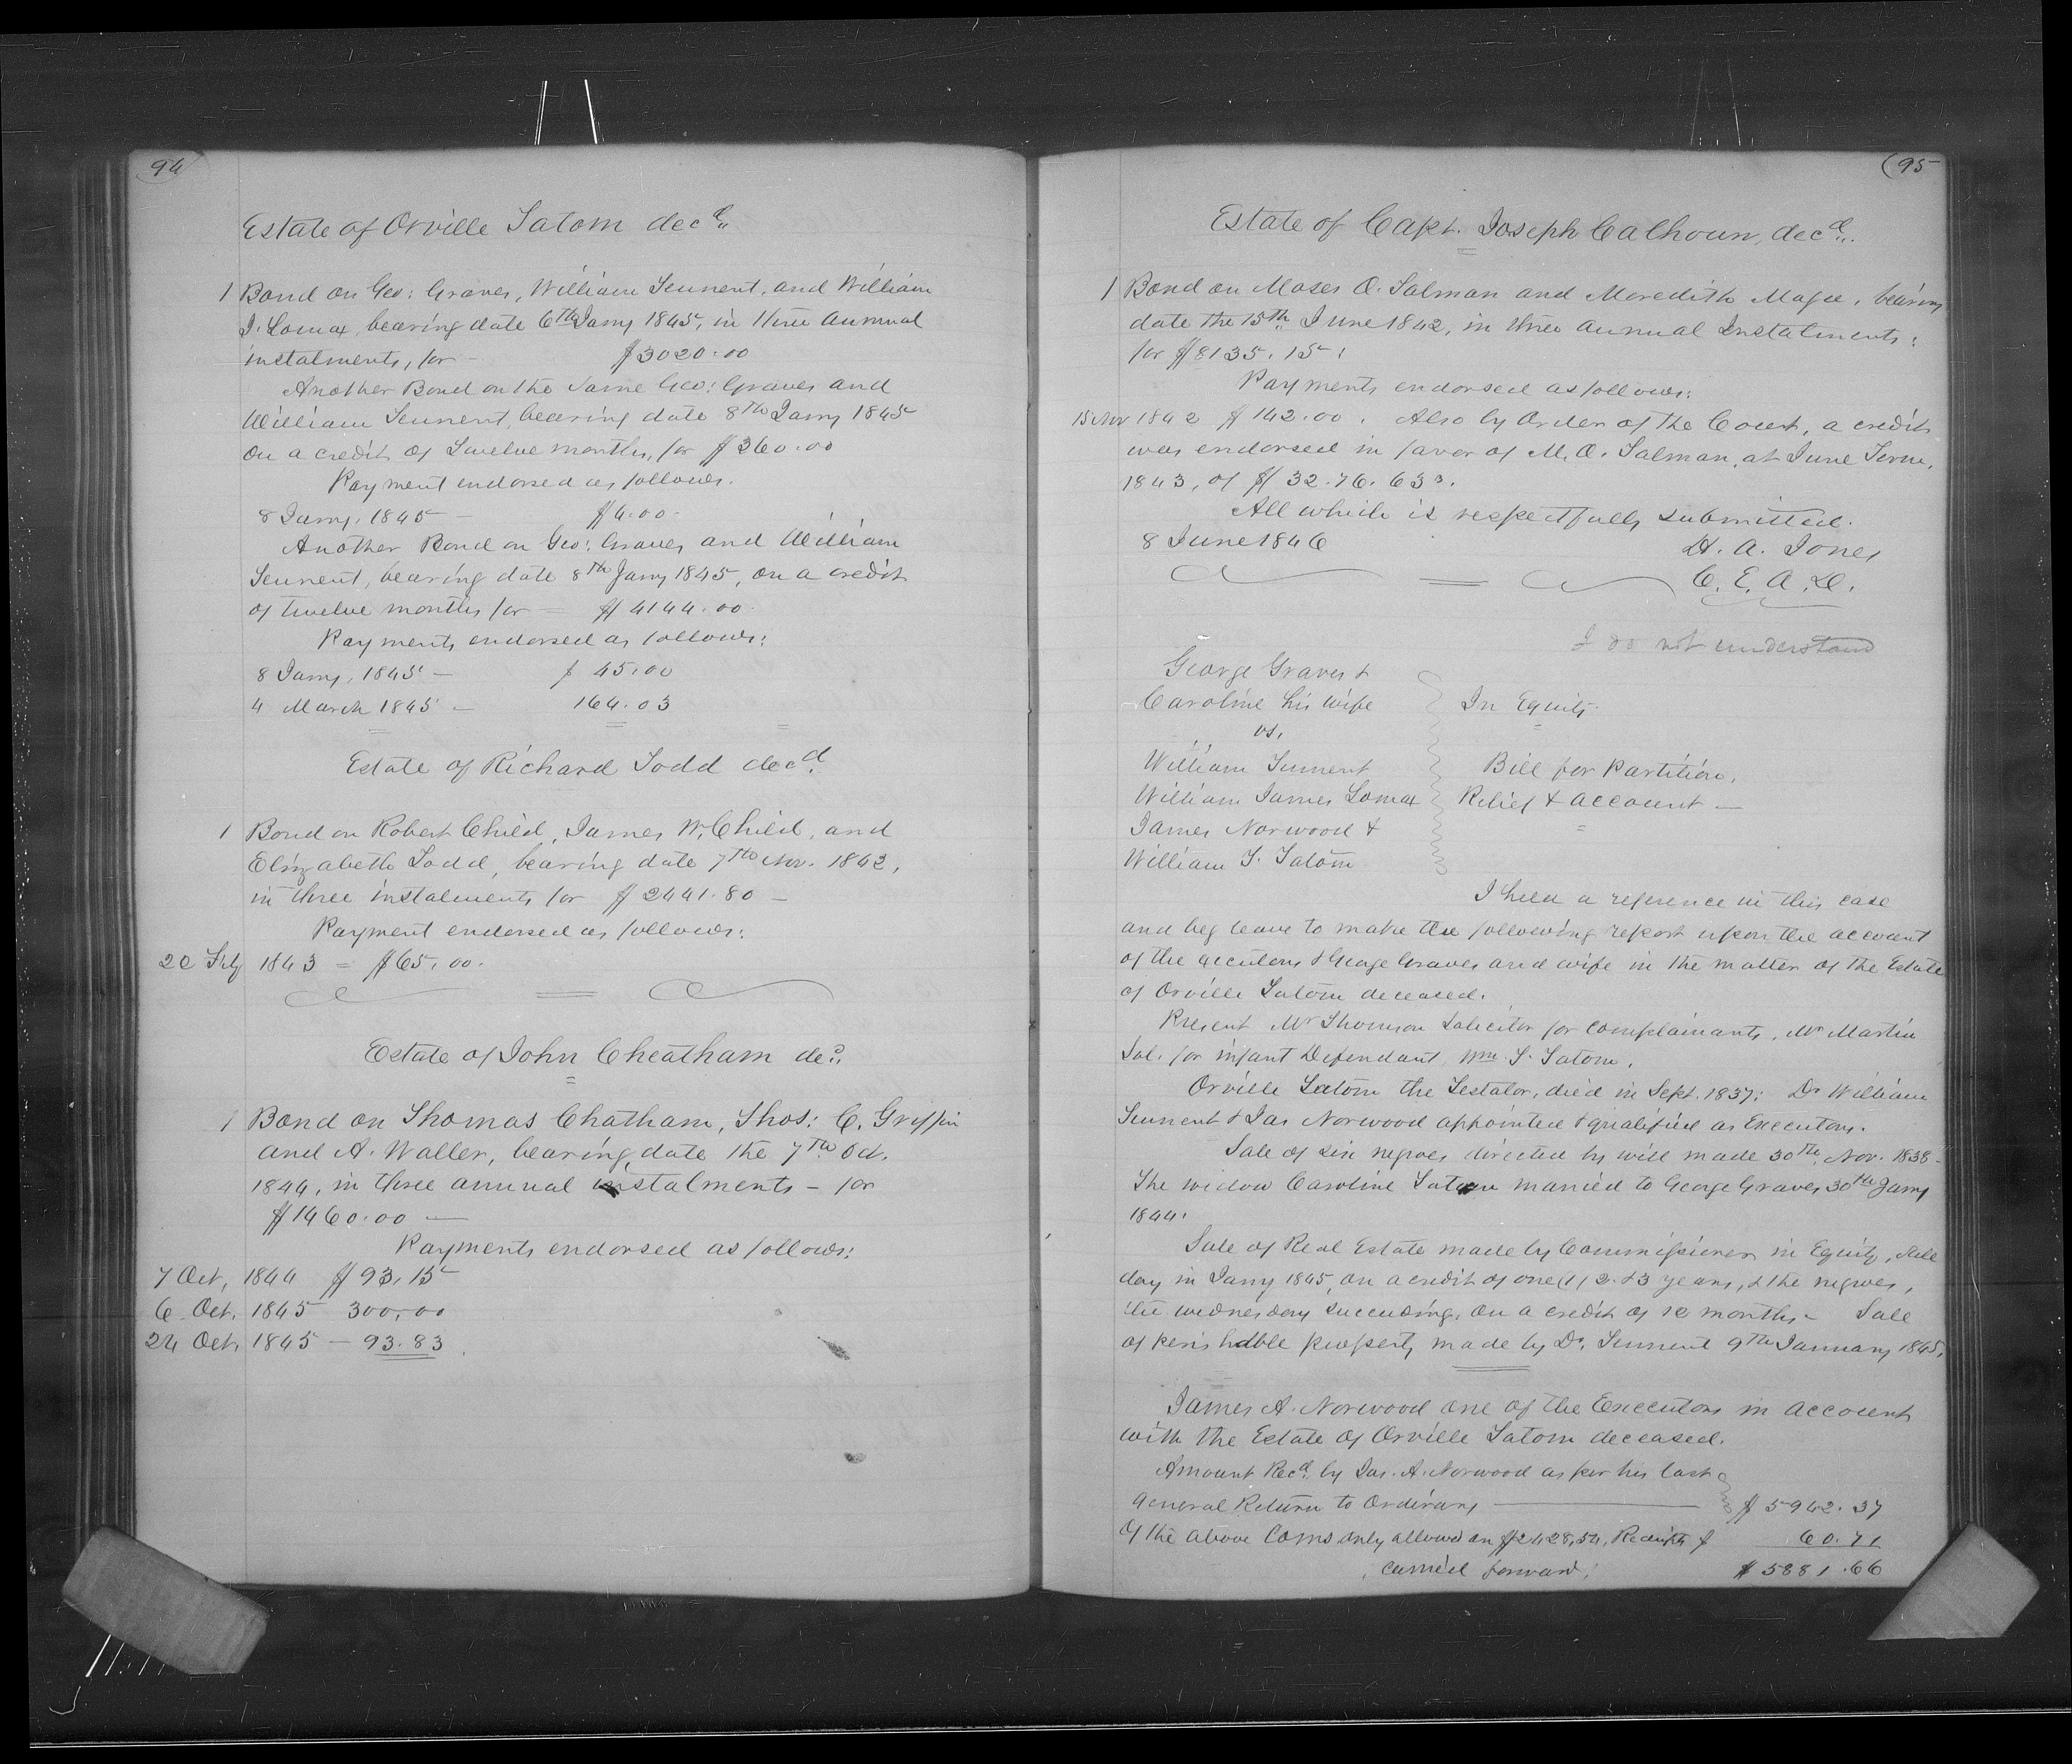 94
Estate of Orville Tatom decd.
1 Bond on Geo: Graves, William Tennent, and William
J. Lomax, bearing date 6th Jany 1845, in three annual
instalments, for — $3020.00
Another Bond on the same Geo: Graves and
William Tennent, bearing date 8th Jany 1845
on a credit of Twelve months, for $360.00
Payment endorsed as follows.
8 Jany. 1845 — $4.00.
Another Bond on Geo: Graves and William
Tennent, bearing date 8th Jany 1845, on a credit
of twelve months for — $4144.00
Payments endorsed as follows:
8 Jany. 1845 — $ 45.00
4 March 1845 — 164.03
Estate of Richard Todd decd.
1 Bond on Robert Child, James W. Child, and
Elizabeth Todd, bearing date 7th Nov. 1842,
in three instalments for $2441.80 —
Payment endorsed as follows:
20 July 1843 = $65.00.
Estate of John Cheatham decd.
1 Bond on Thomas Chatham, Thos: C. Griffin
and A. Waller, bearing date the 7th Oct.
1844, in three annual instalments — for
$1460.00 —
Payments endorsed as follows:
7 Oct, 1844 $93.15
6 Oct. 1845 300.00
24 Oct. 1845 — 93.83
95
Estate of Capt. Joseph Calhoun, decd.
1 Bond on Moses O. Talman and Meredith Magee, bearing
date the 15th June 1842, in three annual Instalments:
for $8135.15:
Payments endorsed as follows:
15 Nov 1842 $142.00. Also by Order of the Court, a credit
was endorsed in favor of M. O. Talman, at June Term,
1843, of $32.76.63.
All which is respectfully submitted.
8 June 1846 H. A. Jones
C. E. A. D.
I do not understand
George Graves &
Caroline his wife In Equity.
vs.
William Tennent Bill for Partition,
William James Lomax Relief & account —
James Norwood &
William T. Tatom
I held a reference in this case
and beg leave to make the following report upon the account
of the executors & George Graves and wife in the matter of the Estate
of Orville Tatom deceased.
Present Mr Thomson Solicitor for complainants, Mr Martin
Sol. for infant Defendant Wm. T. Tatom.
Orville Tatom the Testator, died in Sept. 1837: Dr William
Tennent & Jas Norwood appointed & qualified as Executors.
Sale of six negroes directed by will made 30th. Nov. 1838 —
The widow Caroline Tatom married to George Graves 30th Jany
1844.
Sale of Real Estate made by Commissioner in Equity, Sale
day in Jany 1845, on a credit of one (1) 2 & 3 years, & the negroes,
the wednesday succeeding, on a credit of 12 months — Sale
of perishable property made by Dr. Tennent 9th January 1845.
James A. Norwood one of the Executors in account
with the Estate of Orville Tatom deceased.
Amount Recd. by Jas. A. Norwood as per his last
General Return to Ordinary — $5942.37
Of the above Coms only allowed on $2428.54, Receipts $ 60.71
carried forward: $5881.66